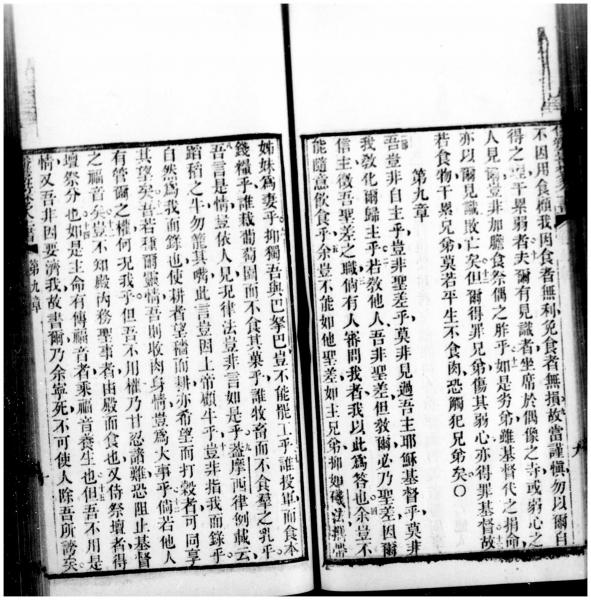 不因用食願我因食者無利免食者無損故當謹愼勿以爾自
得之 干累弱者夫爾有見識者坐席於偶像之寺或弱心之
人見爾豈非加膽食祭偶之胙乎如是劣弟雖基督代之捐命
亦以爾見識敗亡矣但爾得罪兄弟傷其弱心亦得罪基督故
若食物干累兄弟莫若平生不食肉恐觸犯兄弟矣○
第九章
吾豈非自主乎豈非聖差乎莫非見過吾主耶穌基督乎莫非
我敎化爾歸主乎若敎他人吾非聖差但敎爾必乃聖差因爾
信主徵吾聖差之職倘有人審問我者我以此爲答也余豈不
能隨意飲食乎余豈不能如他聖差如主兄弟抑如磯法攜帶
姊妹爲妻乎抑獨吾與巴拏巴豈不能罷工乎誰投軍而食本
錢糧乎誰栽葡萄園而不食其菓乎誰牧畜而不食羣之乳乎
吾言是情豈依人見况律法豈非言如是乎蓋摩西律例載云
蹈稻之牛勿籠其嘴此言豈因上帝顧牛乎豈非指我而錄乎
自然爲我而錄也使耕者望穡而耕亦希望而打穀者可同享
其望矣吾若種爾靈情吾則收肉身情豈爲大事乎倘若他人
有管爾之權何况我乎但吾不用權乃甘忍諸難恐阻止基督
之福音矣豈不知殿內務聖事者由殿而食也又侍祭壇者得
壇祭分也如是主命有傳福音者乘福音養生也但吾不用是
情又吾非因要濟我故書爾乃余寧死不可使人除吾所誇矣
第九章